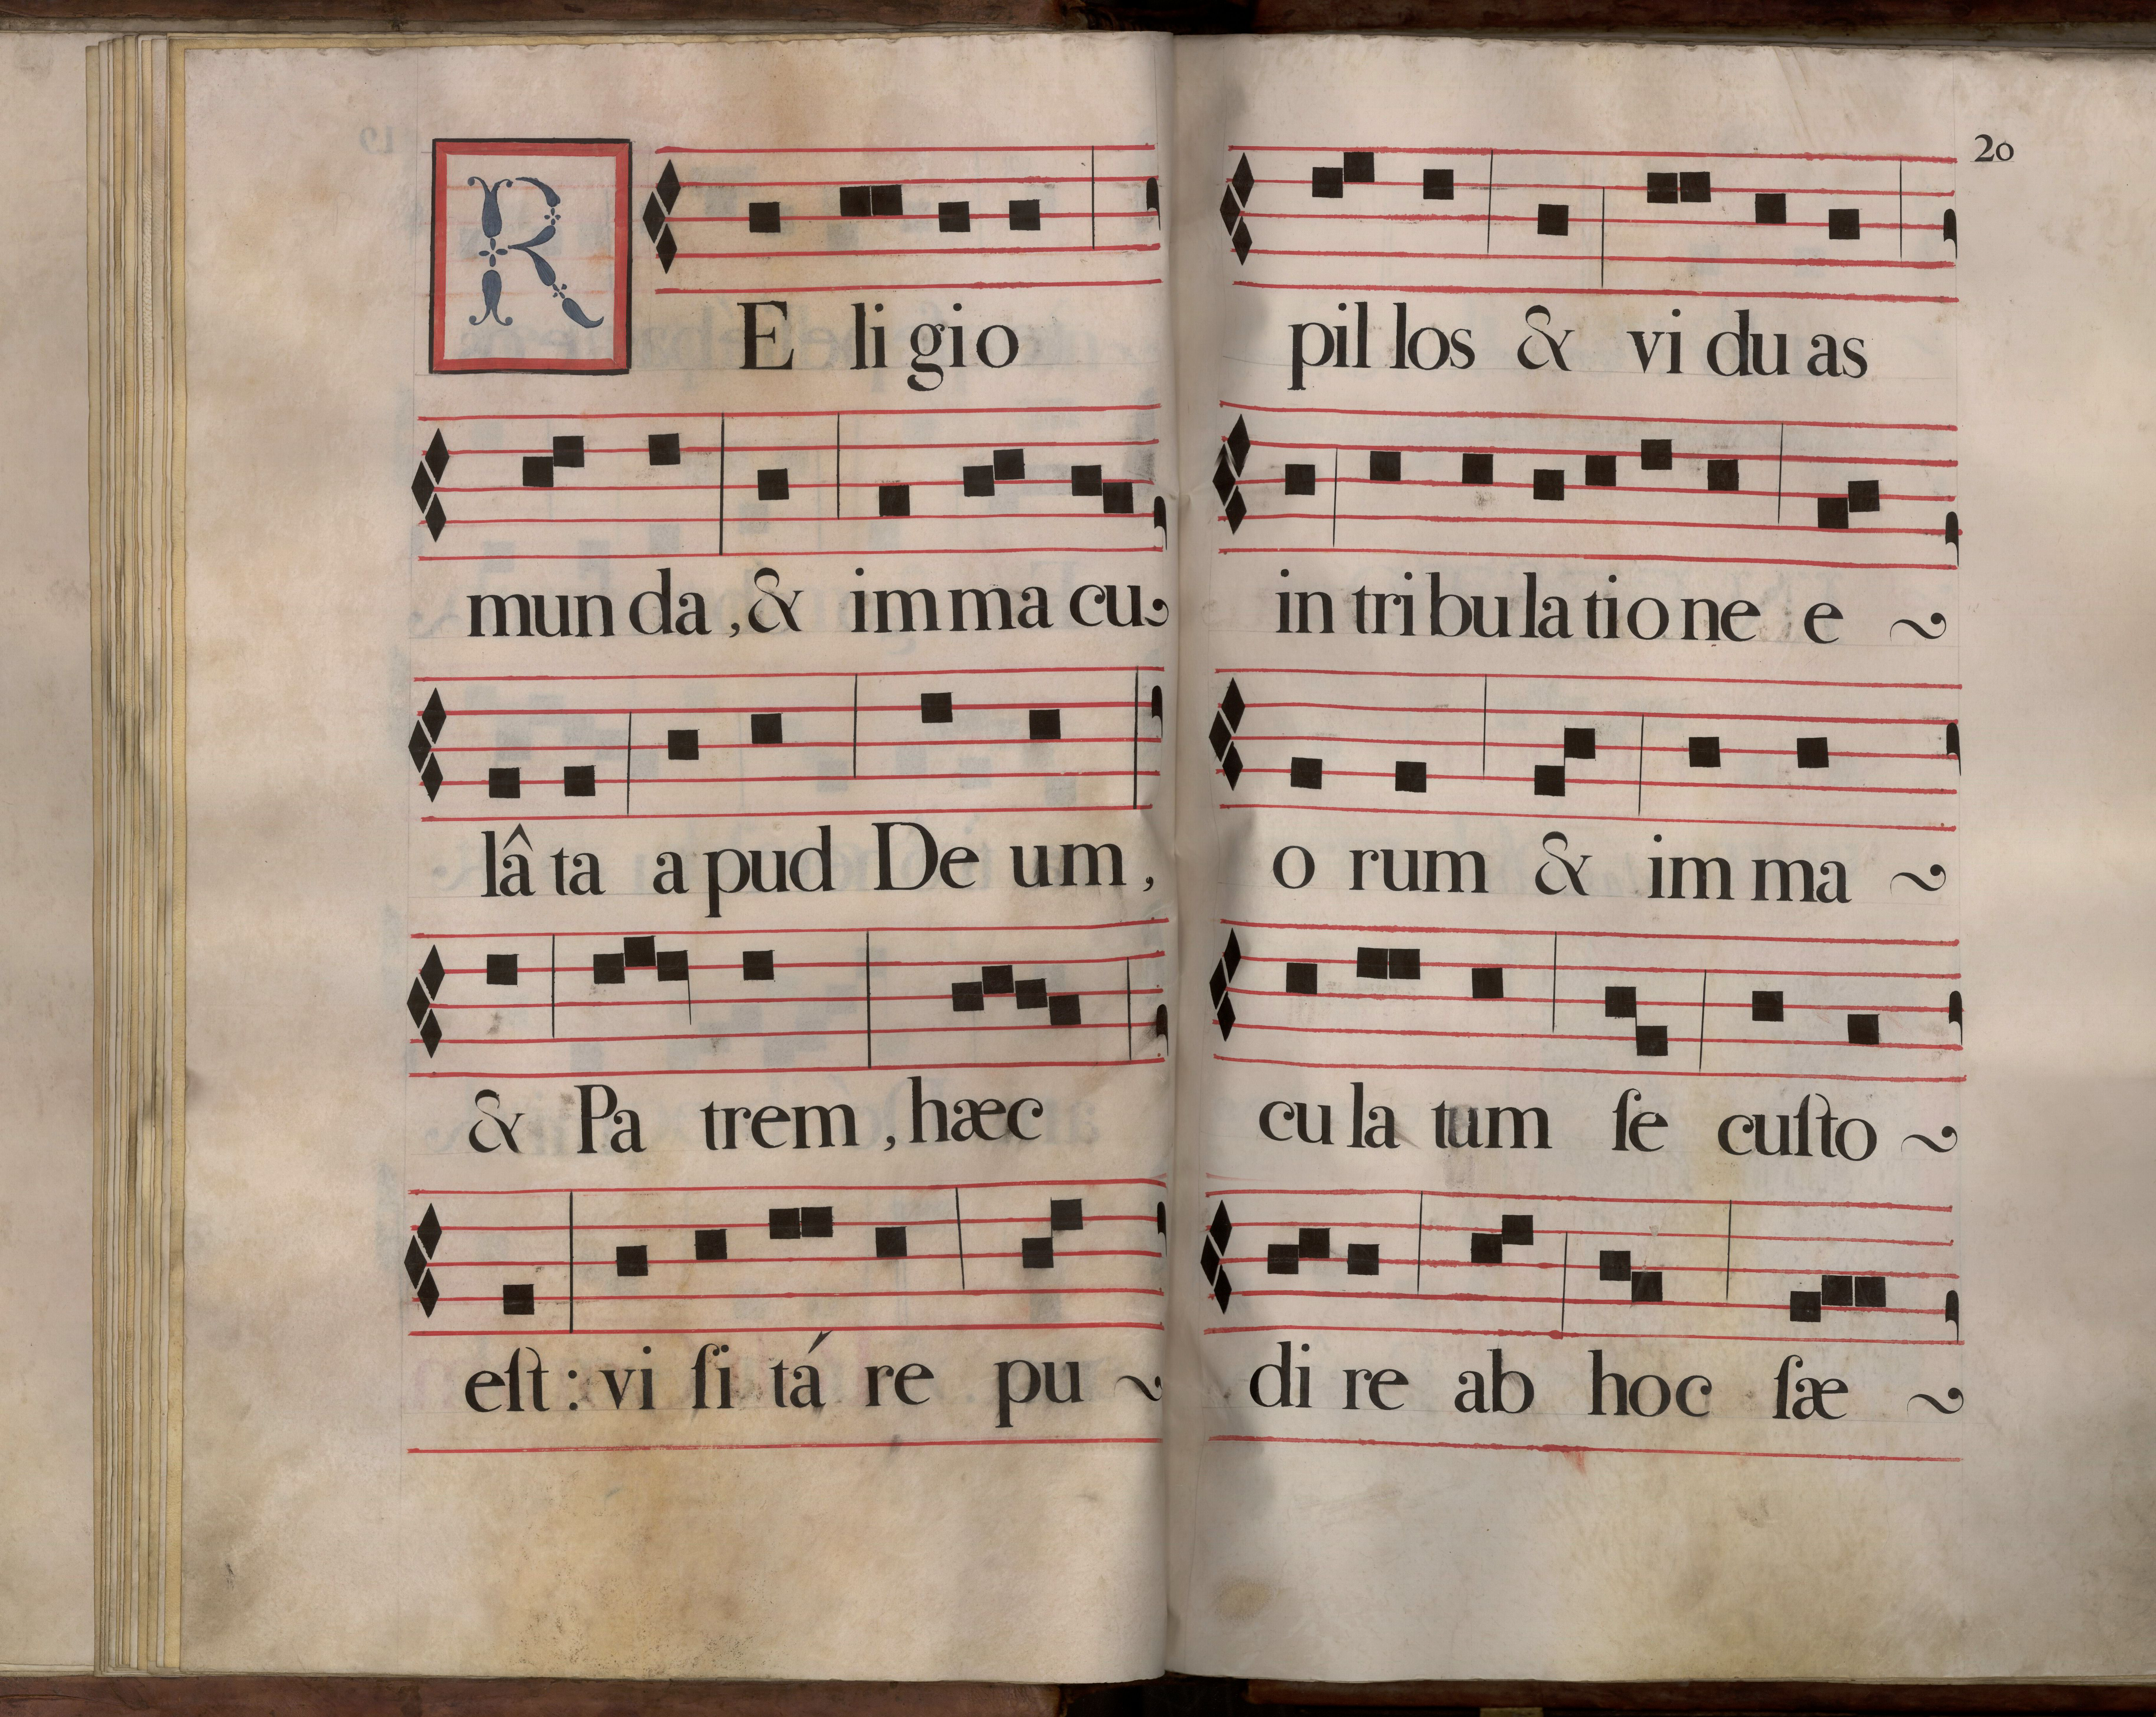 RE li gio
mun da , & im ma cu~
lâ ta a pud De um ,
& Pa trem , hæc
eſt : vi ſi tá re pu ~
20
pil los & vi du as
in tri bu la tio ne e ~
o rum & im ma ~
cu la tum ſe cuſto ~
di re ab hoc ſæ ~